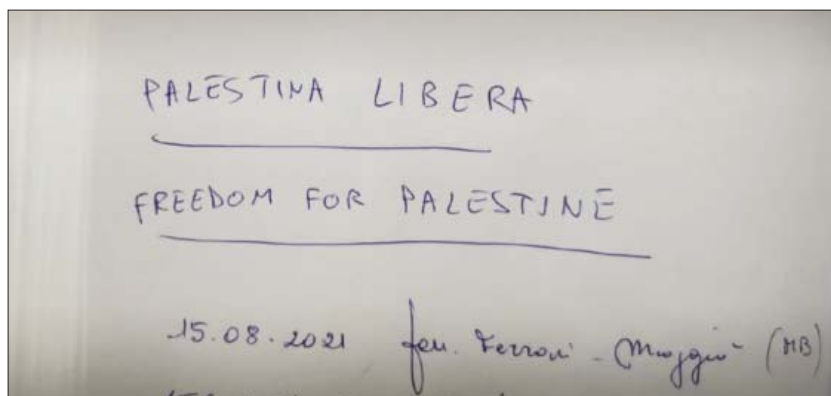 PALESTINA LIBERA
FREEDOM FOR PALESTINE
15.08.2021 fam. Ferrari - Muggiò (MB)